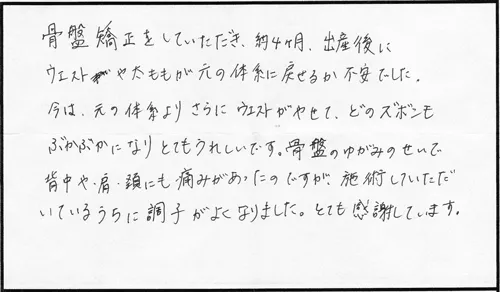 骨盤矯正をしていただき、約4ヶ月、出産後に
ウエストや太ももが元の体系に戻せるか不安でした。
今は、元の体系よりさらにウエストがやせて、どのズボンも
ぶかぶかになりとてもうれしいです。骨盤のゆがみのせいで
背中や・肩・頚にも痛みがあったのですが、施術していただ
いているうちに調子がよくなりました。とても感謝しています。